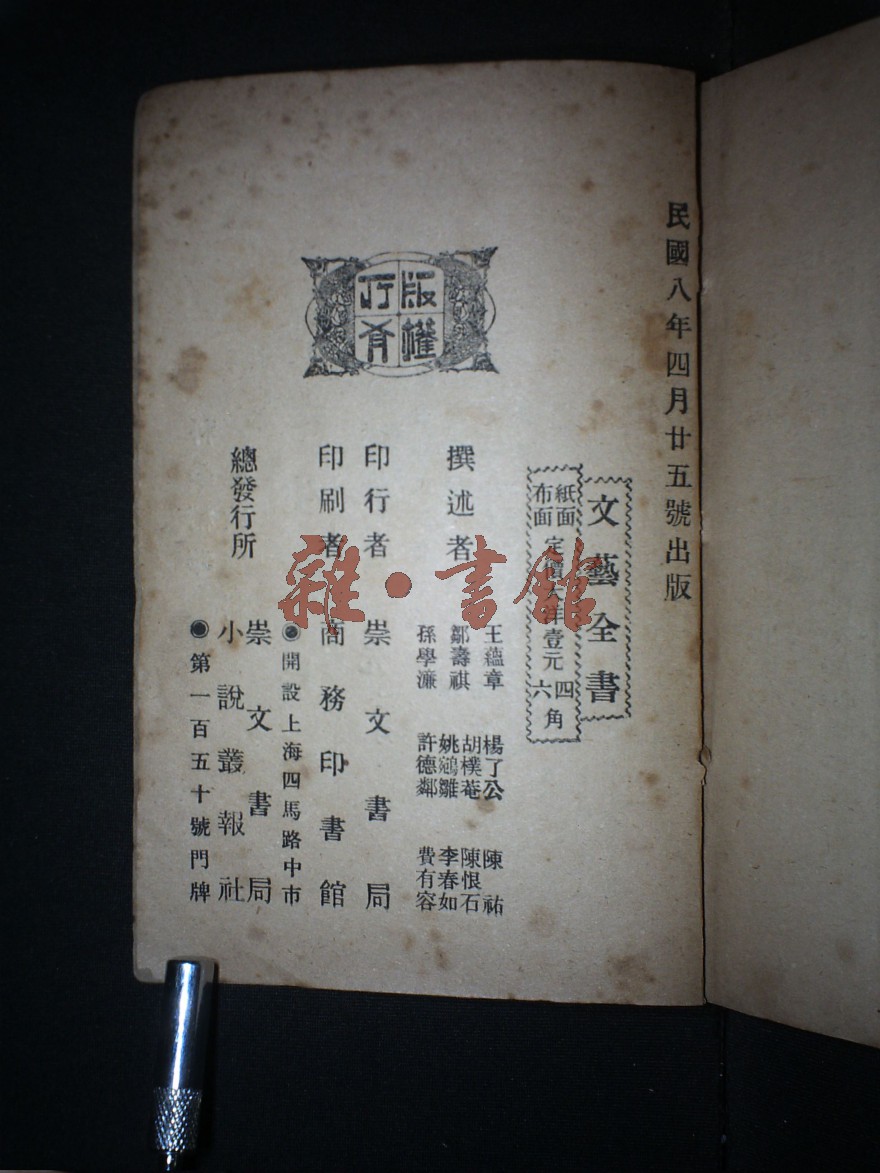 民國八年四月廿五號出版
文藝全書
紙面 定價大洋壹元 四角
布面 定價大洋壹元 六角
版權所有
撰述者
王蘊章 楊了公 陳祐
鄒壽祺 胡樸菴 陳恨石
姚鵷雛 李春如
孫學濂 許德鄰 費有容
印行者 崇文書局
印刷者 商務印書館
總發行所
●開設上海四馬路中市
崇文書局
小說叢報社
●第一百五十號門牌
雜·書館